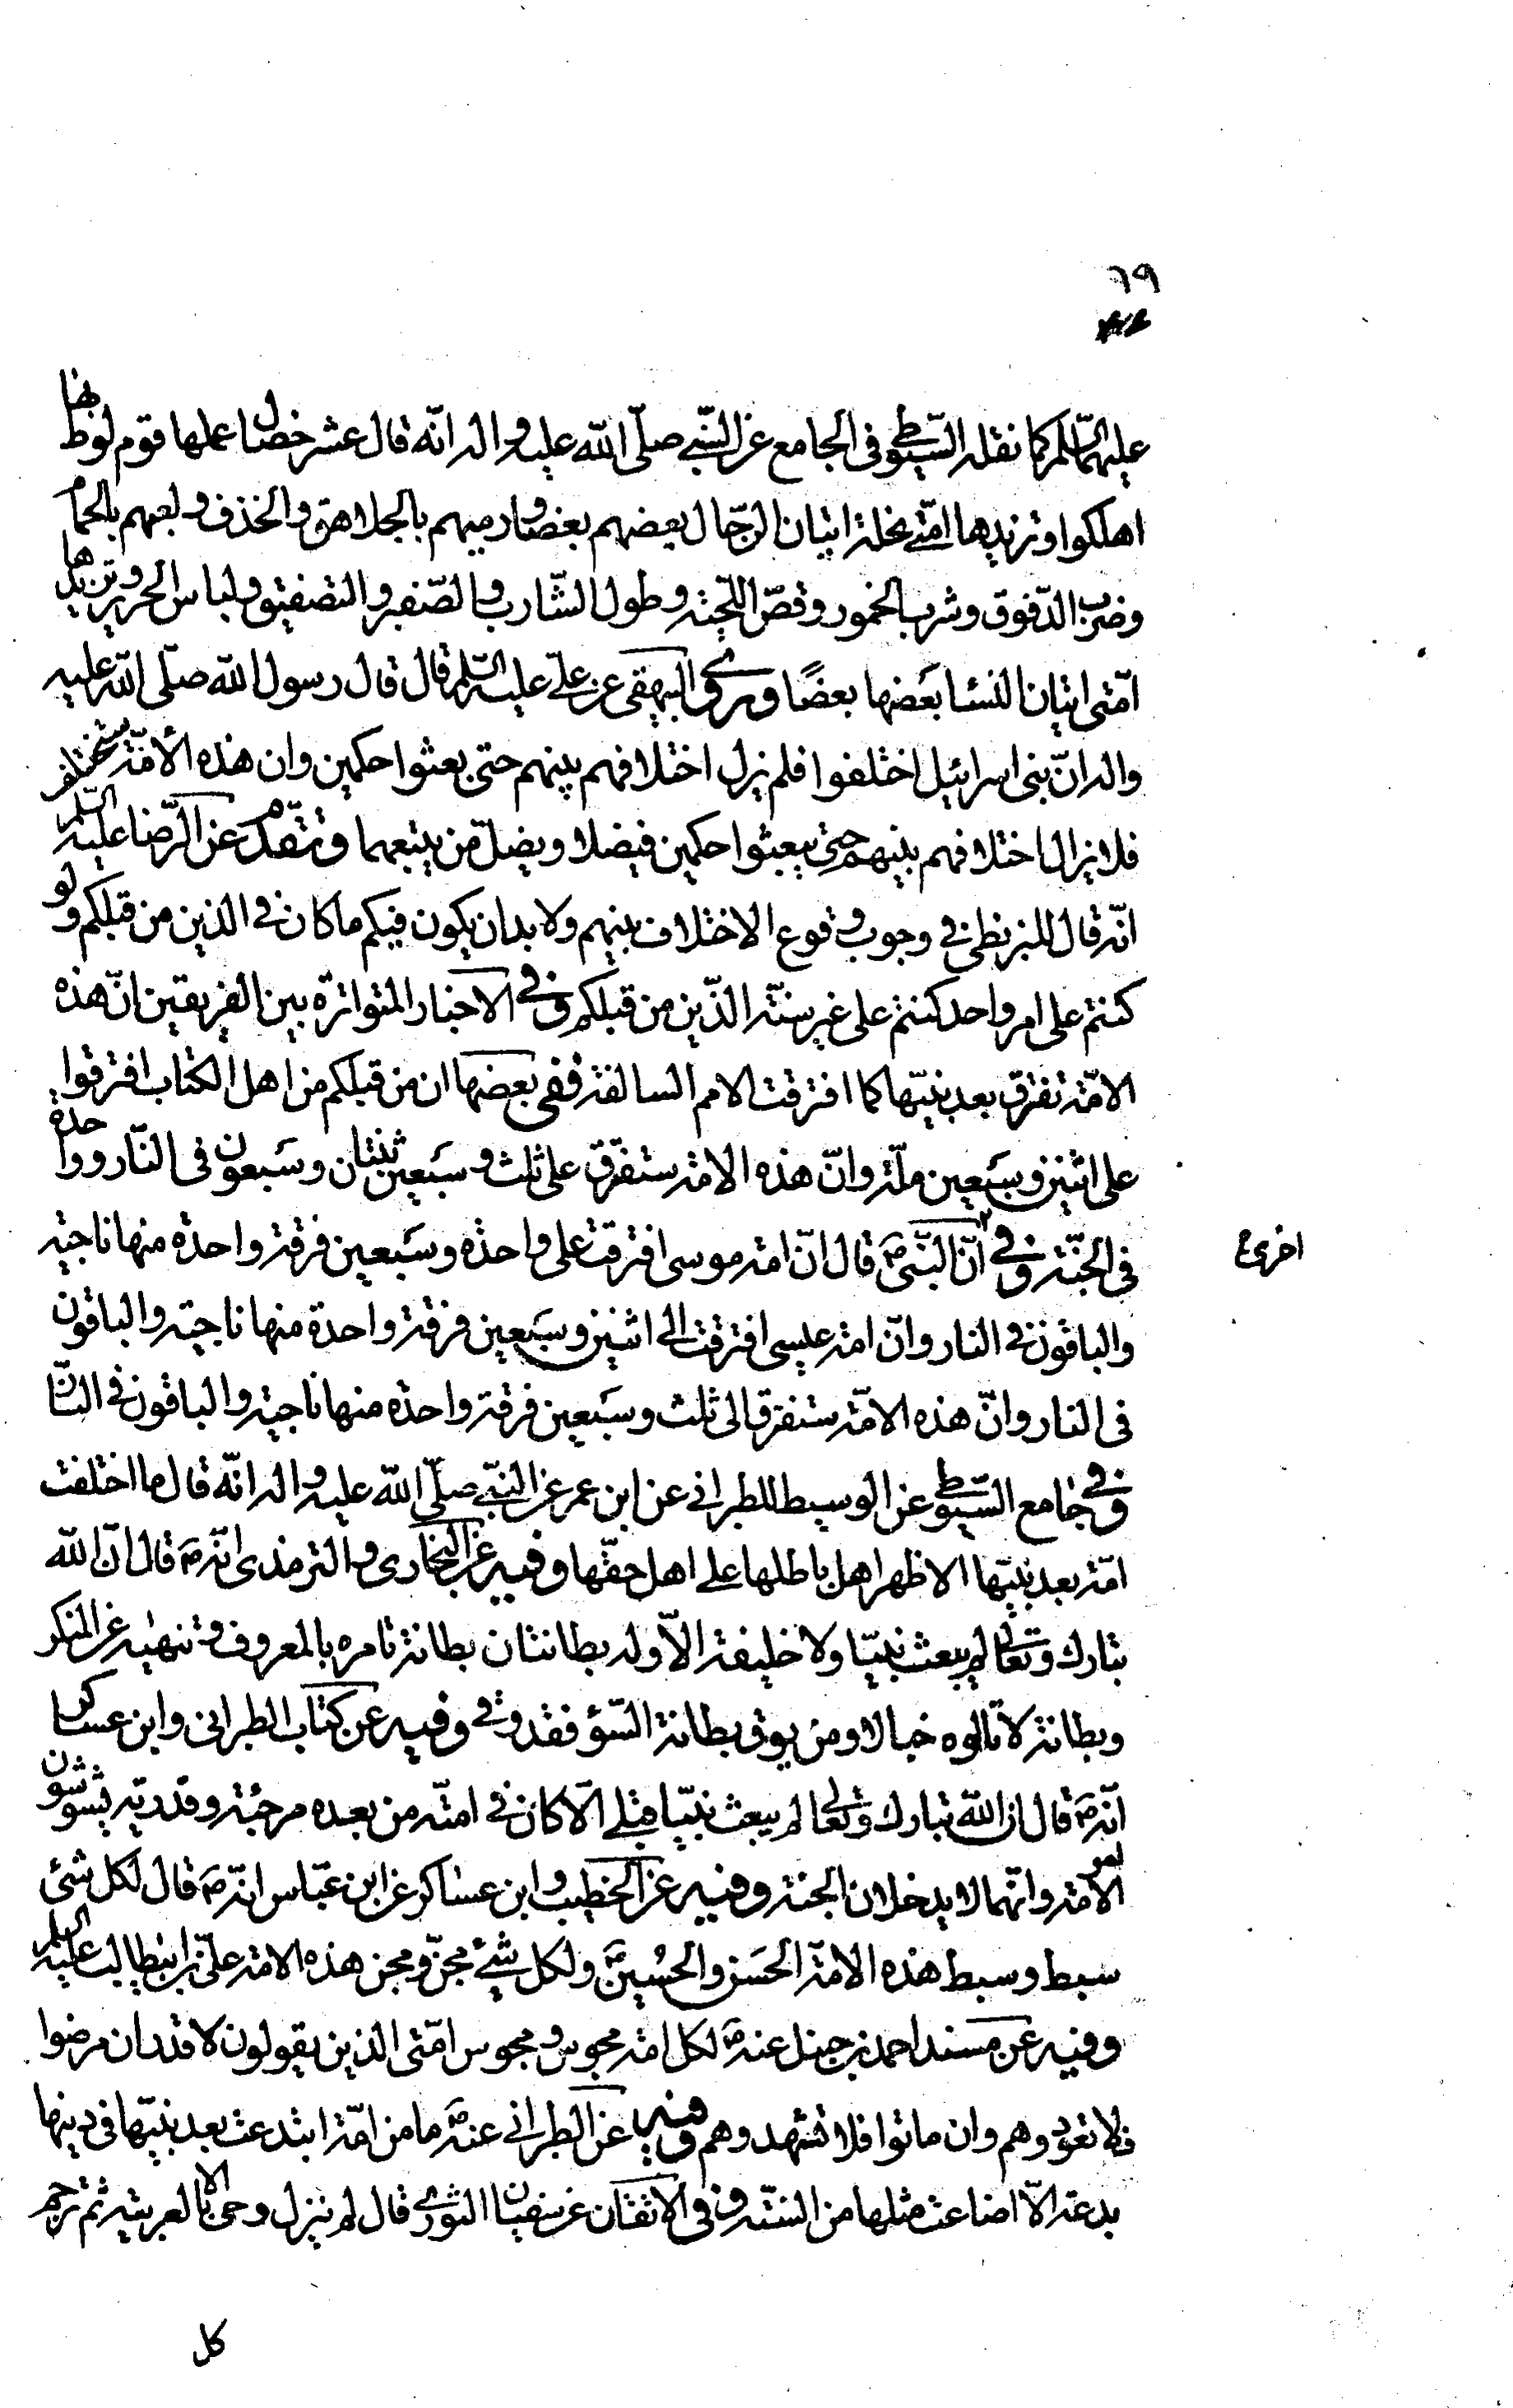 ٦٩
عليهما السلم كما نقله السيوطي في الجامع عن النبي صلّى الله عليه واله انّه قال عشر خصال عملها قوم لوط بها
اهلكوا وتزيدها امّتي بخلة اتيان الرّجال بعضهم بعضا ورميهم بالجلاهق والخذف ولعبهم بالحمام
وضرب الدّفوف وشرب الخمور وقصّ اللّحية وطول الشّارب والصّفير والتصفيق ولباس الحرير وتزيدها
امّتي اتيان النساء بعضها بعضًا وروى البيهقي عن عليّ عليه السّلم قال قال رسول الله صلّى الله عليه
واله انّ بني اسرائيل اختلفوا فلم يزل اختلافهم بينهم حتى بعثوا حكمين وان هذه الأمّة ستختلف
فلا يزال اختلافهم بينهم حتى يبعثوا حكمين فيضلا ويضلّ من يتبعهما وتقدّم عن الرّضا عليه السّلم
انّه قال للبزنطي في وجوب وقوع الاختلاف بينهم ولا بد ان يكون فيكم ما كان في الذين من قبلكم ولو
كنتم على امر واحد كنتم على غير سنّة الذّين من قبلكم وفي الاخبار المتواترة بين الفريقين انّ هذه
الامّة تفرّق بعد نبيّها كما افترقت الامم السالفة ففي بعضها ان من قبلكم من اهل الكتاب افترقوا
على اثنين وسبعين ملّة وانّ هذه الامة ستفرّق على ثلث وسبعين ثنتان وسبعون في النّار وواحدة
في الجنّة وفي انّ النّبي ص قال انّ امة موسى افترقت على واحدة وسبعين فرقة واحدة منها ناجية
اخرى ع
والباقون في النار وانّ امة عيسى افترقت الى اثنين وسبعين فرقة واحدة منها ناجية والباقون
في النار وانّ هذه الامّة ستفترق الى ثلث وسبعين فرقة واحدة منها ناجية والباقون في النّار
وفي جامع السّيوطي عن الوسيط للطبراني عن ابن عمر عن النبّي صلّى الله عليه واله انّه قال ما اختلفت
امّة بعد نبيّها الا ظهر اهل باطلها على اهل حقّها وفيه عن البخاري والترمذي انّه ص قال انّ الله
تبارك وتعالى لم يبعث نبيّا ولا خليفة الاّ وله بطانتان بطانة تامره بالمعروف وتنهيه عن المنكر
وبطانة لا تالوه خبالا ومن يوق بطانة السّؤ فقد وقي وفيه عن كتاب الطبراني وابن عساكر
انّه ص قال ان الله تبارك وتعالى لم يبعث نبيّا قبلي الاّ كان في امتّه من بعده مرجئة وقدرية يشوشون
امر الامة وانّهما لا يدخلان الجنة وفيه عن الخطيب وابن عساكر عن ابن عبّاس انّه ص قال لكل شئ
سبط وسبط هذه الامّة الحَسَن والحُسين ولكل شئ مجنّ ومجن هذه الامة عليّ بن ابيطالب عليه السلم
وفيه عن مسند احمد بن حنبل عنه ص لكل امة مجوس ومجوس امّتي الذين يقولون لا قدر ان مرضوا
فلا تعودوهم وان ماتوا فلا تشهدوهم وفيه عن الطبراني عنه ص ما من امّة ابتدعت بعد نبيّها في دينها
بدعة الاّ اضاعت مثلها من السنّة وفي الاتقان عن سفيان الثوري قال لم ينزل وحي الا بالعربية ثم ترجم
كل